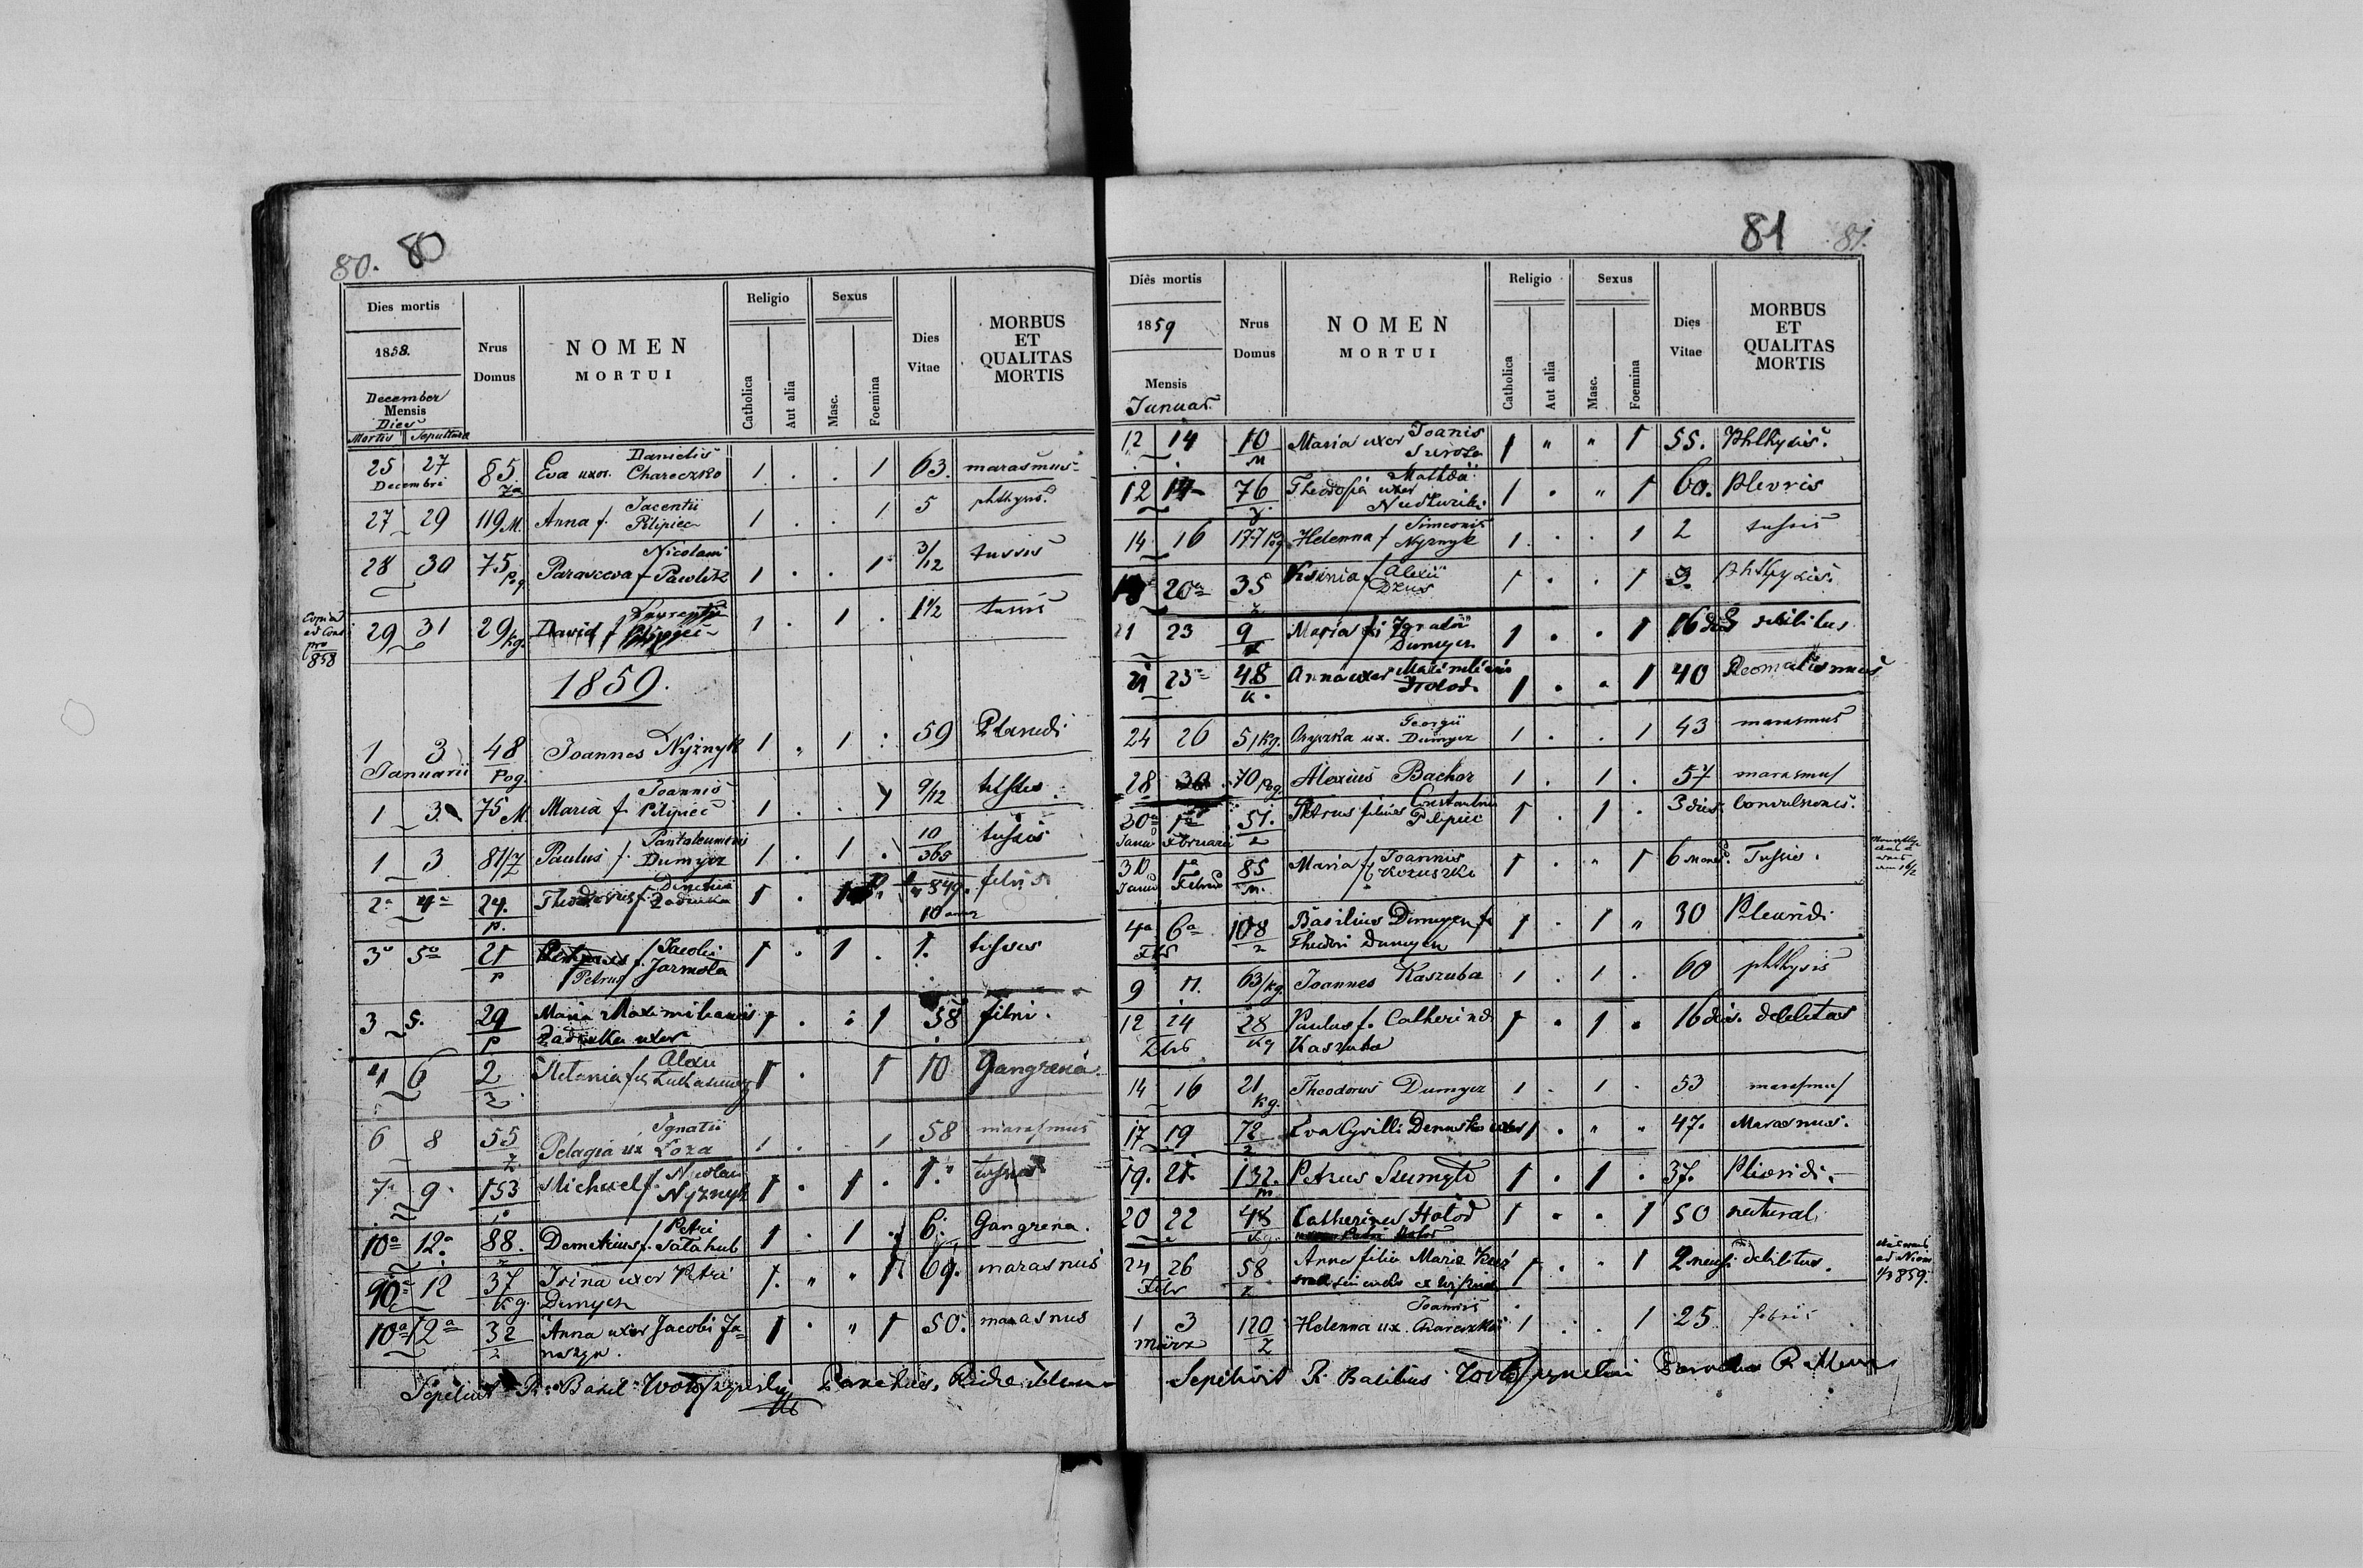 80. 80
Dies mortis
1858.
December
Mensis
Dies
Mortis Sepultura
Nrus
Domus
NOMEN
MORTUI
Religio
Catholica
Aut alia
Sexus
Masc.
Foemina
Dies
Vitae
MORBUS
ET
QUALITAS
MORTIS
25 27 85 Eva uxor. Danielis Chareczko 1 . . 1 63. marasmus
Decembri
27 29 119 M. Anna f. Jacentii Pilipiec 1 . . 1 5 phthysis
28 30 75 Pog Parasceva f. Nicolai Pawlik 1 . . 1 3/12 tussis
29 31 29 Kg. David f. Laurentii Pilipiec 1 . 1 . 1 1/2 tussis
858
1859.
1 3 48 Pog. Joannes Nyżnyk 1 . 1 . 59
Januarii
1 3 75 M. Maria f. Joannis Pilipiec 1 . . 1 9/12 tussis
1 3 81/Z Paulus f. Pantaleimonis Dumycz 1 . 1 . 10/365 tussis
2a 4a 24. p. Theodorus f. Zadruka 1 .
3a 5a 21 p Petrus f. Jacobi Jarmola 1 . 1 . 1. tussis
3 5. 29 p Maria Maximilianis 1 . . 1 58 febri.
Zadruka uxor
4 6 2 z Stefania Alexii 1 . 1 10 Gangrena
6 8 55 z Pelagia ux Ignatii Łoza 1 . . 1 58 marasmus
7a 9 153 Michael f. Nicolai Nyznyk 1 . 1 . 1. tussis
10a 12a 88. Demetrius f. Petri Satahub 1 . 1 . 6. Gangrena.
10a 12 37 Kg. Irina uxor Petri 1. " " 1 69. marasmus
Dumycz
10a 12a 32 z Anna uxor Jacobi 1 . " 1 50. marasmus
Sepelivit R. Basil
81 81.
Dies mortis
1859
Mensis
Januar.
Nrus
Domus
NOMEN
MORTUI
Religio
Catholica
Aut alia
Sexus
Masc.
Foemina
Dies
Vitae
MORBUS
ET
QUALITAS
MORTIS
12 14 10 M Maria uxor Joanis 1 " " 1 55. Phthysis.
12 14 76 Theodosia uxor 1 . " 1 60. Plevris
14 16 177 Pog Helenna f Simeonis Nyznyk 1 . . 1 2 tussis
18 20a 35 z Ksinia f Alexii Dzus 1 . . 1 3. Phthysis.
21 23 9 Maria f Ignatii Dumycz 1 . . 1 16 dies debilitas
21 23 48 K. Anna uxor Maximiliani 1 . . 1 40
24 26 51 Kg. ux. Georgii Dumycz 1 . . 1 43 marasmus
28 30 70 Pog Alexius Bachor 1 . 1 . 57 marasmus
30a 1a 51. z Petrus filius Constantini Pilipiec 1 . 1 . 3 dies Convulsiones.
Januar Februarii
30 1a 85 M. Maria f Joannis Kozuszko 1 . " 1 6 Tussis.
Januar Februar
4a 6a 108 z Basilius Dumycz f. 1 . 1 " 30 Pleuridi
Febr Theodori Dumycz
9 11. 63/Kg. Joannes Kaszuba 1 . 1 . 60 phthysis
12 14 28 Kg Paulus f. Catherinae 1 . 1 . 16 dies. debilitas
Febr Kaszuba
14 16 21 Kg. Theodorus Dumycz 1 . 1 . 53 marasmus
17 19 72 z Eva Cyrilli Denusko uxor 1 . " " 47. Marasmus.
19. 21. 132. m Petrus 1 . 1 . 37. Plioridi.
20 22 48 Kg. Catherina Hołod 1 . . 1 50 natural.
24 26 58 z Anna filia Maria 1 . . 1 2 debilitas.
Febr
859.
1 3 120 Z Helenna ux. Joannis Chareczko 1 . . 1 25 febris
März
Sepelivit R. Basilius